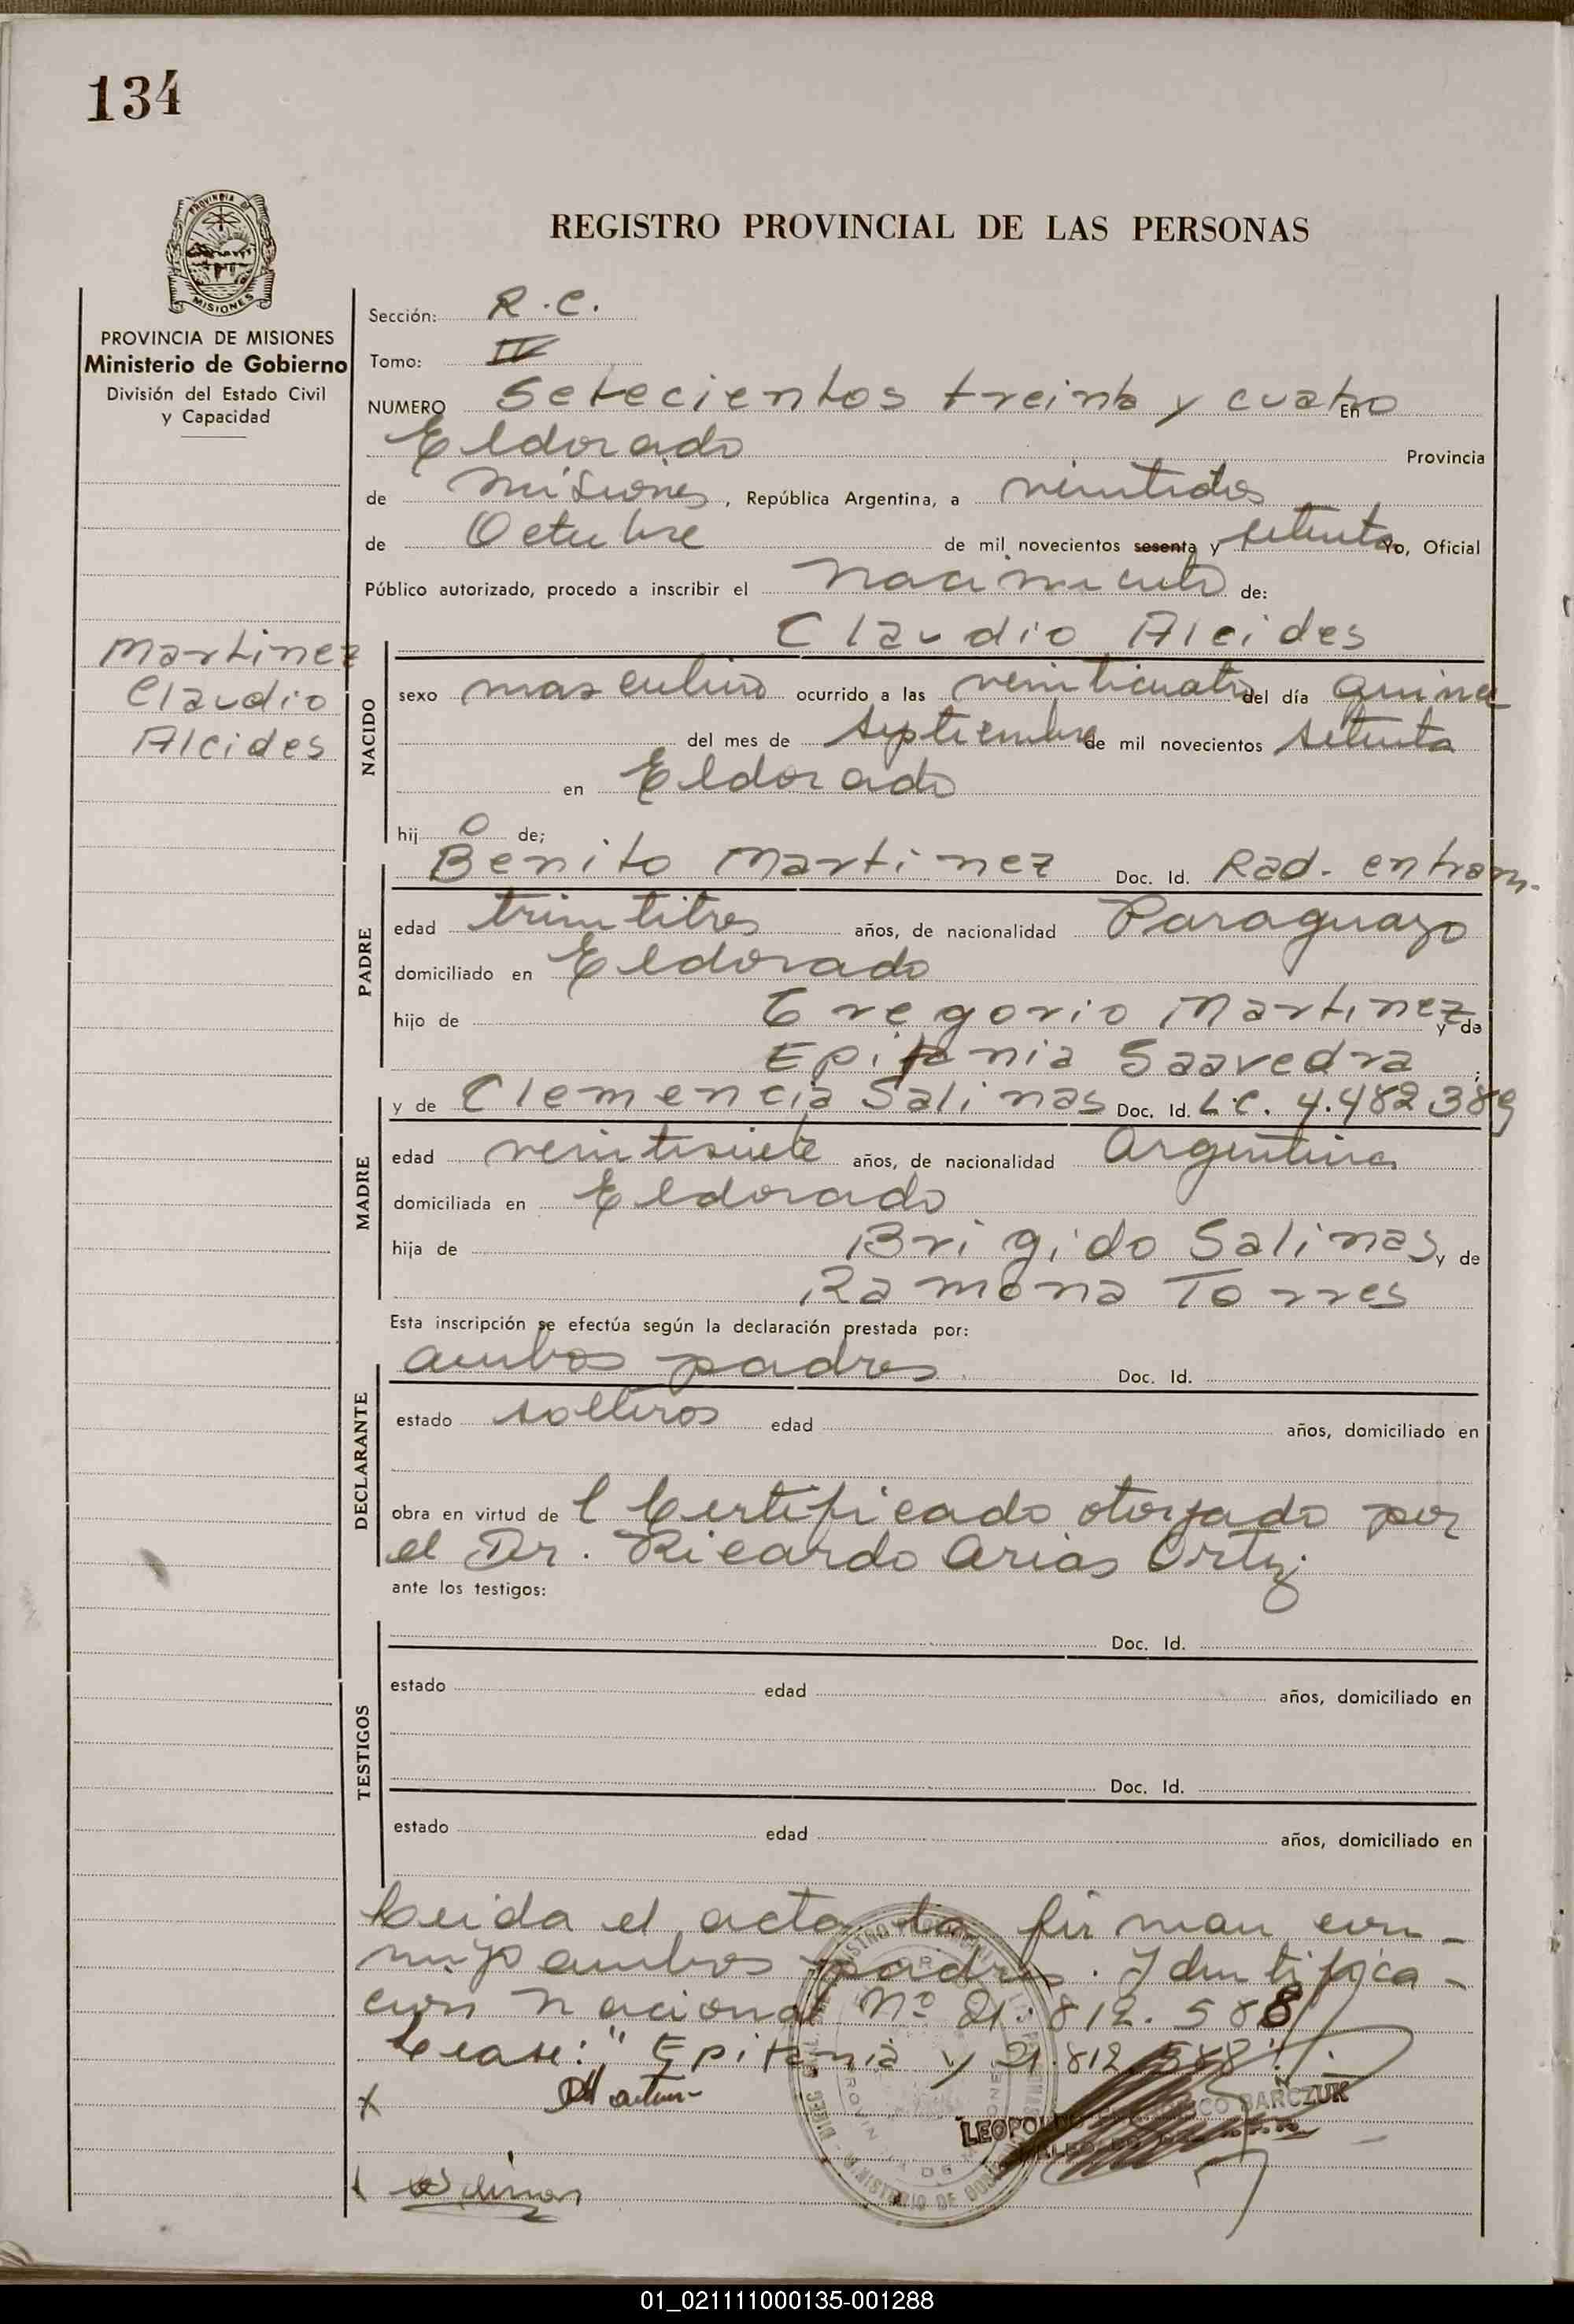 134
PROVINCIA DE MISIONES
REGISTRO PROVINCIAL DE LAS PERSONAS
PROVINCIA DE MISIONES
Ministerio de Gobierno
División del Estado Civil
y Capacidad
Martinez
Claudio
Alcides
Sección: R.C.
Tomo: IV
NUMERO Setecientos treinta y cuatro En
Eldorado Provincia
de Misiones, República Argentina, a veintidos
de Octubre de mil novecientos sesenta y setenta Yo, Oficial
Público autorizado, procedo a inscribir el nacimiento de:
Claudio Alcides
NACIDO
sexo masculino ocurrido a las veinticuatro del día quince
del mes de septiembre de mil novecientos setenta
en Eldorado
hij o de;
Benito Martinez Doc. Id. Rad. en tram.
PADRE
edad treintitres años, de nacionalidad Paraguayo
domiciliado en Eldorado
hijo de Gregorio Martinez y de
Epifania Saavedra ;
y de Clemencia Salinas Doc. Id. L.C. 4.482.389
MADRE
edad veintisiete años, de nacionalidad Argentina
domiciliada en Eldorado
hija de Brigido Salinas y de
Ramona Torres
Esta inscripción se efectúa según la declaración prestada por:
ambos padres Doc. Id.
DECLARANTE
estado solteros edad años, domiciliado en
obra en virtud de l Certificado otorgado por
el Dr. Ricardo Arias Ortiz
ante los testigos:
Doc. Id.
TESTIGOS
estado edad años, domiciliado en
Doc. Id.
estado edad años, domiciliado en
Leida el acta la firman con-
migo ambos padres. Identifica-
cion Nacional Nº 21.812.588
Lease: "Epifania y 21.812.588".
X
LEOPOLDO BARCZUK
01_021111000135-001288